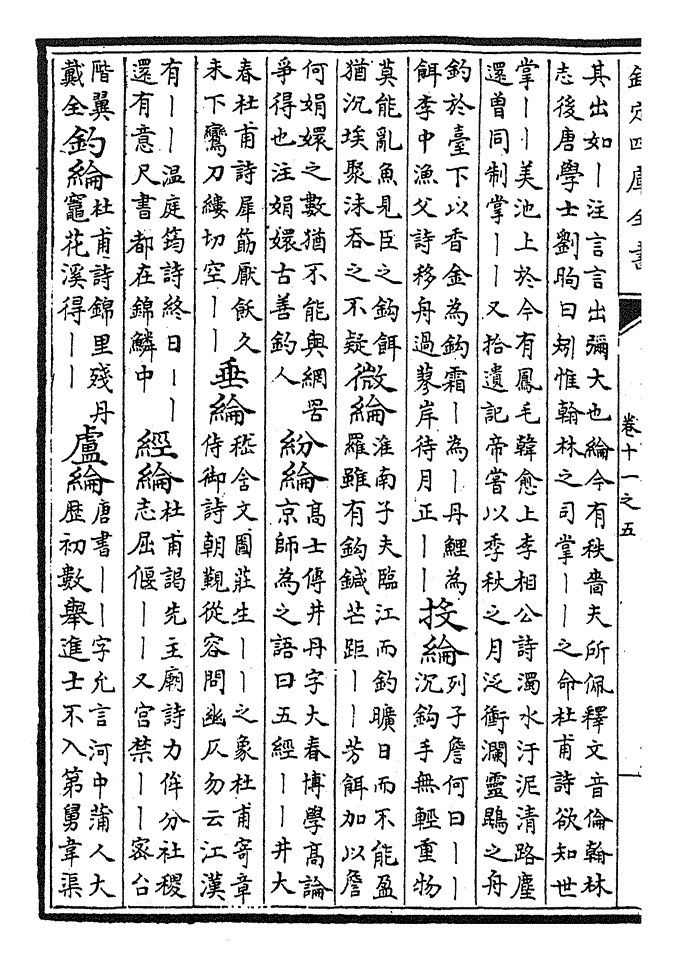 欽定四庫全書
卷十一之五
其出如丨注言言出彌大也綸今有秩嗇夫所佩釋文音倫翰林
志後唐學士劉昫曰矧惟翰林之司掌丨丨之命杜甫詩欲知世
掌丨丨美池上於今有鳳毛韓愈上李相公詩濁水汙泥清路塵
還曾同制掌丨丨又拾遺記帝嘗以季秋之月泛衝瀾靈鷁之舟
釣於臺下以香金為鈎霜丨為丨丹鯉為
餌李中漁父詩移舟過蓼岸待月正丨丨
投綸
列子詹何曰丨丨
沉鈎手無輕重物
莫能亂魚見臣之鈎餌
猶沉埃聚沫吞之不疑
微綸
淮南子夫臨江而釣曠日而不能盈
羅雖有鈎鍼芒距丨丨芳餌加以詹
何娟嬛之數猶不能與網罟
爭得也注娟嬛古善釣人
紛綸
高士傳井丹字大春博學高論
京師為之語曰五經丨丨井大
春杜甫詩犀筯厭飫久
未下鸞刀縷切空丨丨
垂綸
嵇含文圖莊生丨丨之象杜甫寄章
侍御詩朝覲從容問幽仄勿云江漢
有丨丨温庭筠詩終日丨丨
還有意尺書都在錦鱗中
經綸
杜甫謁先主廟詩力侔分社稷
志屈偃丨丨又宫禁丨丨宻台
階翼
戴全
釣綸
杜甫詩錦里殘丹
竈花溪得丨丨
盧綸
唐書丨丨字允言河中蒲人大
歴初數舉進士不入第舅韋渠